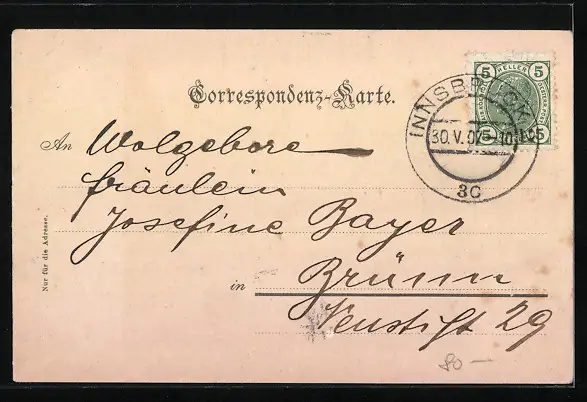 5 HELLER 5
Correspondenz-Karte.
INNSBRUCK
30.V.07
5 5
3C
An Wolgebore
fräulein
Josefine Bayer
in Brünn
Neustift 29
Nur für die Adresse.
80 —